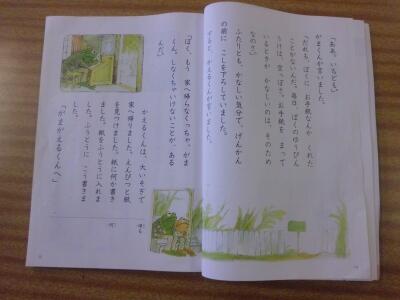 「ああ、いちども。」
がまくんが言いました。
「だれも、ぼくに お手紙なんか くれた
ことがないんだ。毎日、ぼくのゆうびん
うけは、空っぽさ。お手紙を まって
いるときが かなしいのは、そのため
なのさ。」
ふたりとも、かなしい気分で、げんかん
の前に こしを下ろしていました。
すると、かえるくんが言いました。
「ぼく、もう 家へ帰らなくっちゃ、がま
くん。しなくちゃいけないことが、ある
んだ。」
かえるくんは、大いそぎで
家へ帰りました。えんぴつと紙
を見つけました。紙に何か書き
ました。紙をふうとうに入れま
した。ふうとうに こう書きま
した。
「がまがえるくんへ」